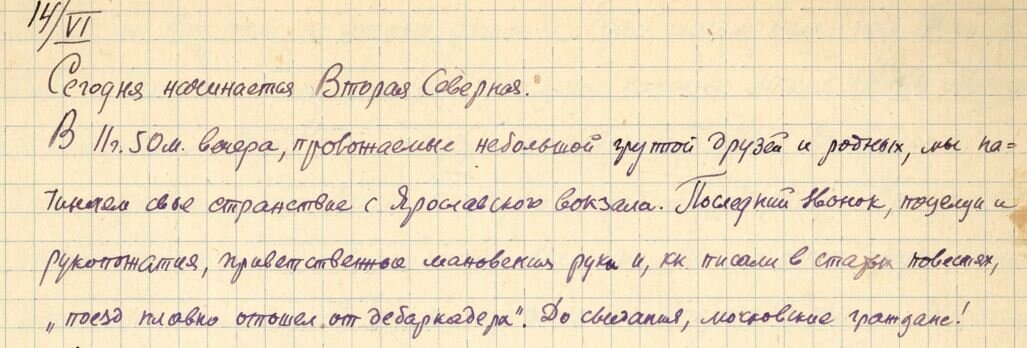 14/VI
Сегодня начинается Вторая Северная.
В 11 г. 50 м. вечера, провожаемые небольшой группой друзей и родных, мы на=
чинаем свое странствие с Ярославского вокзала. Последний звонок, поцелуи и
рукопожатия, приветственные мановения руки и, кк писали в старых повестях,
„поезд плавно отошел от дебаркадера". До свидания, московские граждане!